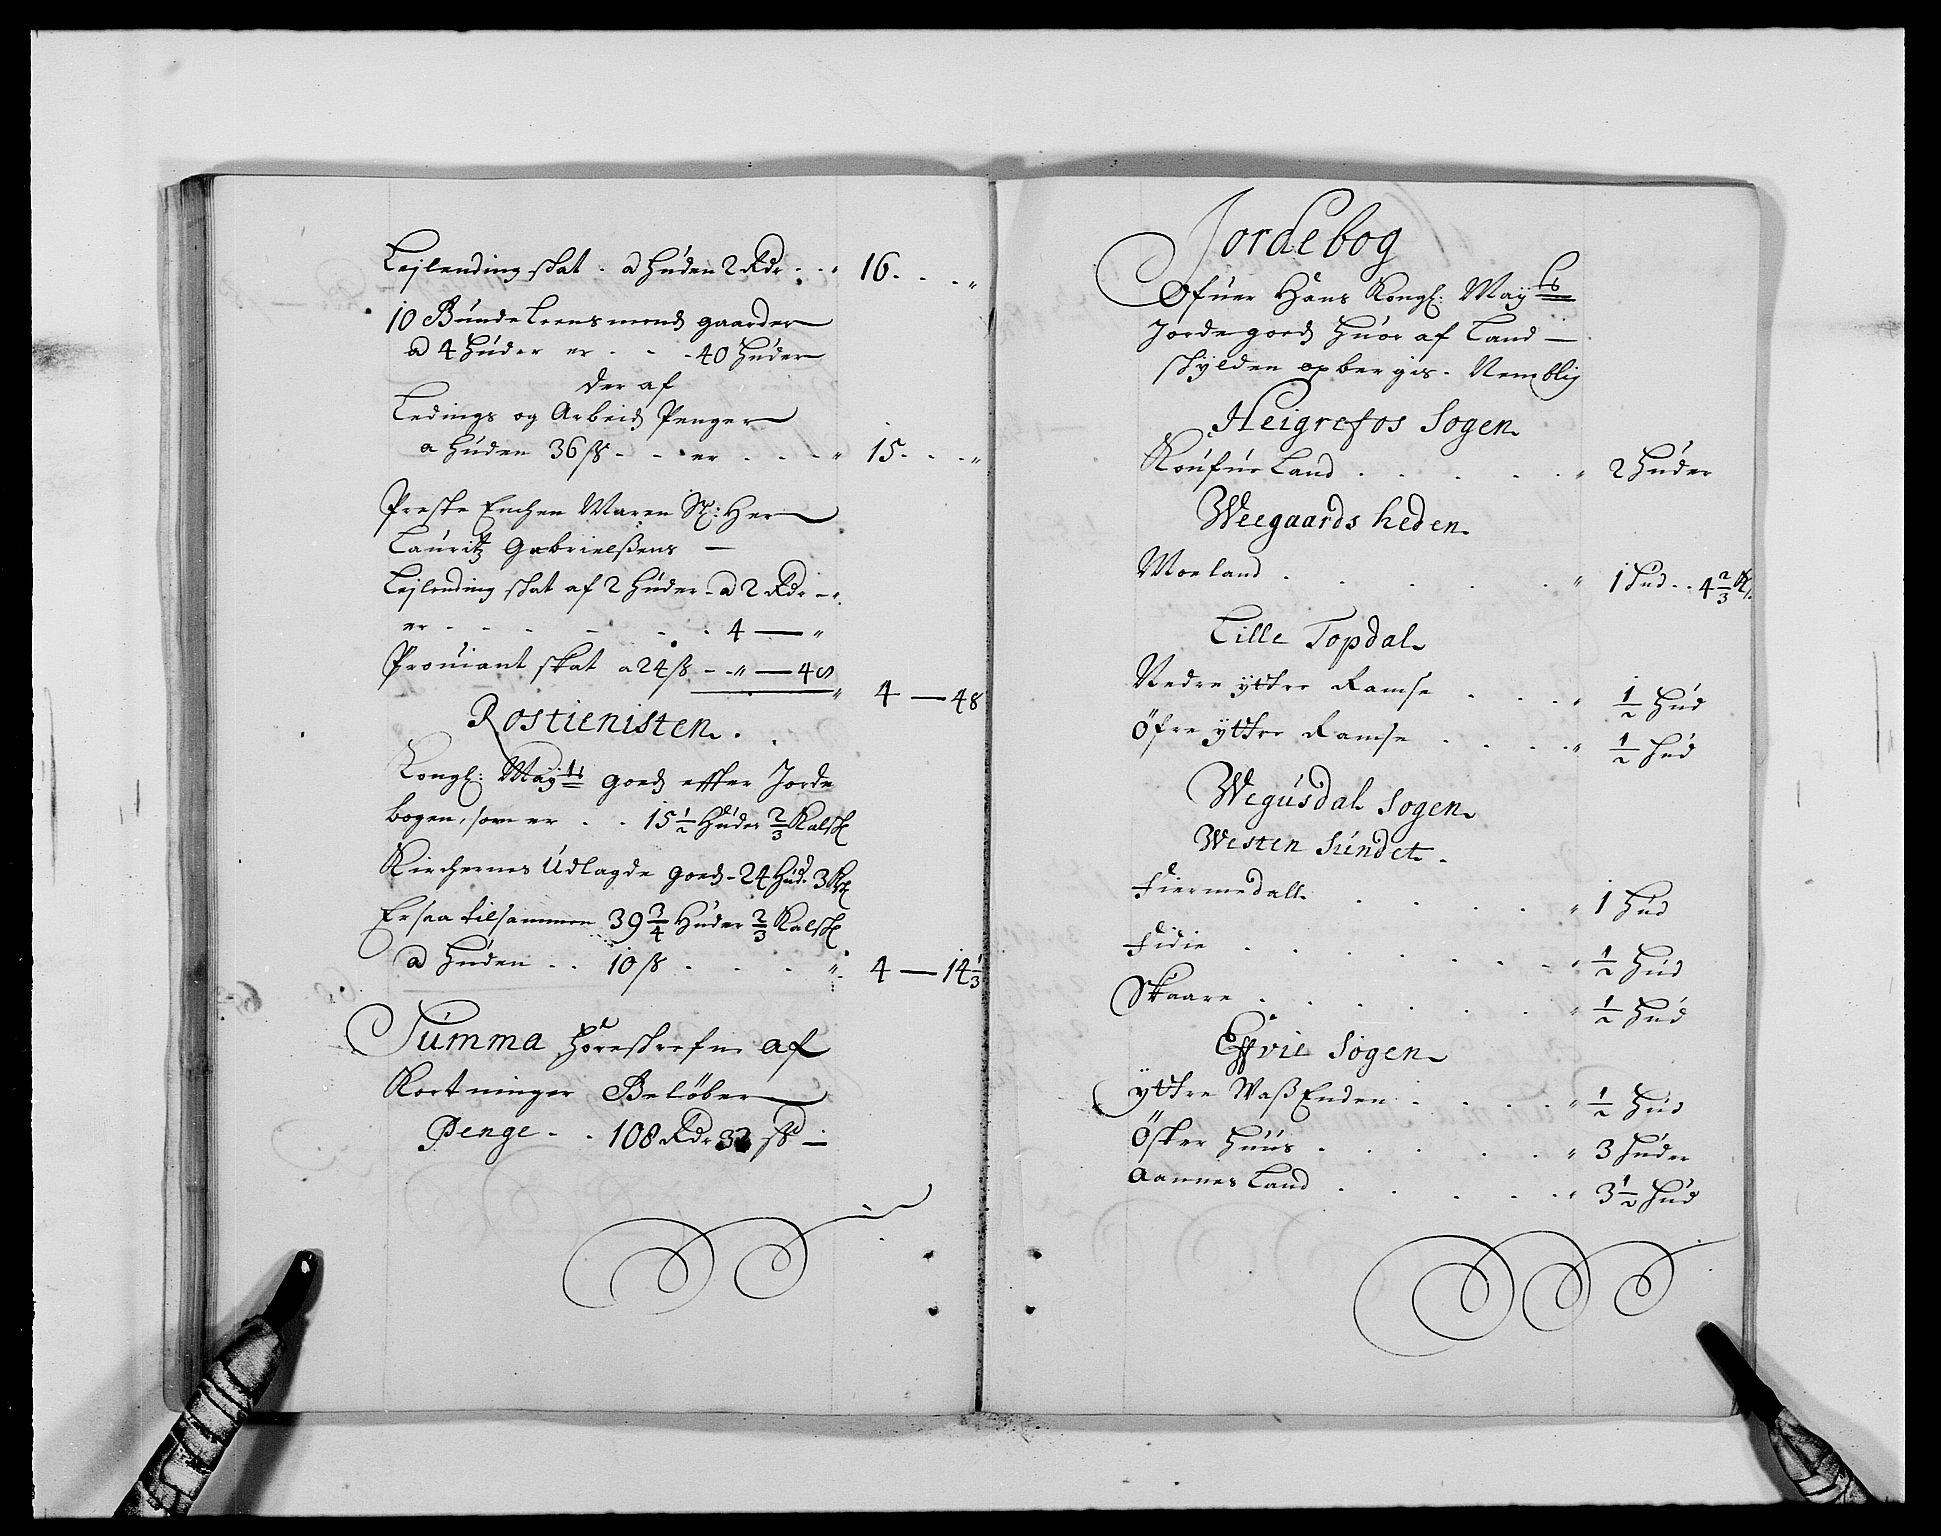 Lejlending skat . a huden 2 Rdr . . " 16 . . . "
10 Bunde Lensmends gaarder
a 4 huder er . . . 40 huder
der af
Ledings og Arbeids Penger
a huden 36 ß - - er . . . " 15 . . . "
Preste Enchen Maren Sl: Her
Lauritz Gabrielßens —
Lejlending skat af 2 huder - a 2 Rdr - "
er . . . . . . . 4 — "
Proviant skat a 24 ß - - " — 48
" 4 — 48
Rostienisten .
Kongl: Mayts goeds effter Jorde
bogen, som er . . 15 1/2 Huder 2/3 Kalfsk
Kirchernes Udlagde goeds - 24 Hud: 3 Kl
Er saa tilsammen 39 3/4 Huder 2/3 Kalfsk
a huden . . 10 ß . . . . " 4 — 14 1/3
Summa Forschrefne af
Kortninger Beløber
Penge . . 108 Rdr 32 ß —
Jordebog
Ofuer Hans Kongl: Mayts
Jordegoeds huor af Land —
skylden opbergis . Nemblig
Heigrefos Sogen
Koufur Land . . . . . " 2 huder
Weegaards heden
Moeland . . . . . " 1 Hud . . 4 2/3 Kl.
Lille Topdal
Nedre yttre Ramse . . . " 1/2 Hud
Öfre yttre Ramse . . . . " 1/2 hud
Wegusdal Sogen
Westen Sundet .
Fiermedall . . . . . " 1 hud
Fidie . . . . . . . " 1/2 hud
Skaare . . . . . . " 1/2 hud
Effvie Sogen
yttre Waß Enden . . . . " 1/2 hud
Ösker huus . . . . . " 3 huder
Aannes Land . . . . . " 3 1/2 hud